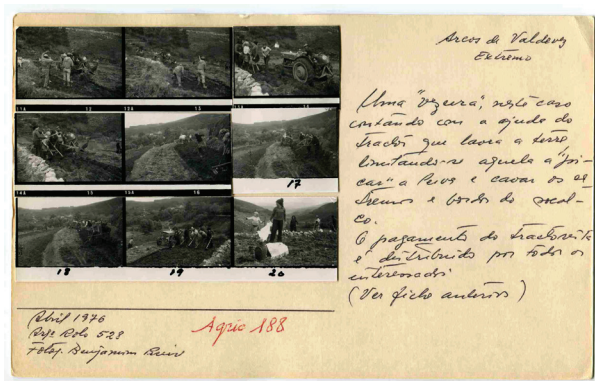 Arcos de Valdevez
Extremo
Uma "vezeira", neste caso
contando com a ajuda do
tractor que lavra a terra,
limitando-se aquela a "pi-
car" a leiva e cavar os ex-
tremos e bordos do socal-
co.
O pagamento do tractorista
é distribuido por todos os
interessados
(Ver ficha anterior)
17
18
19
20
Abril 1976
Rolo 528
Fotog. Benjamim
Agrio 188